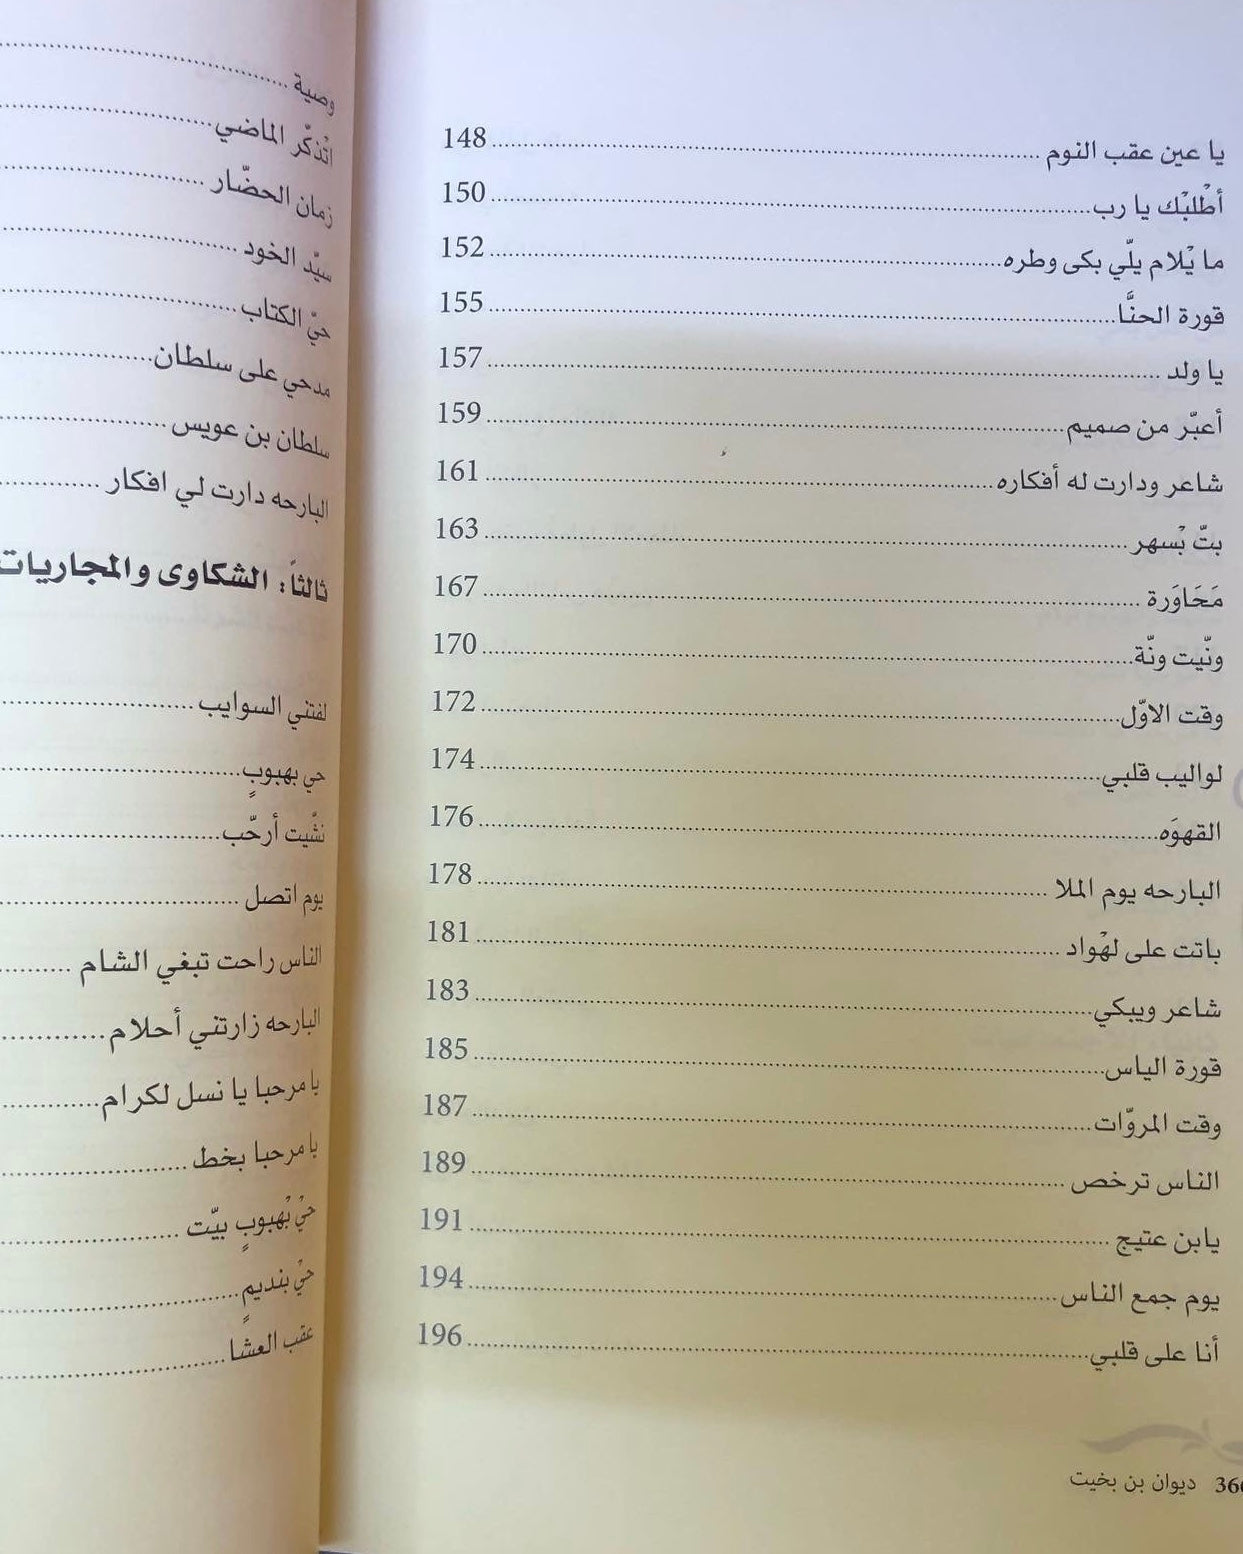 يا عين عقب النوم ........ 148
أطْلبْك يا رب ........ 150
ما يْلام يلّي بكى وطره ........ 152
قورة الحنَّا ........ 155
يا ولد ........ 157
أعبّر من صميم ........ 159
شاعر ودارت له أفكاره ........ 161
بتّ بْسهر ........ 163
مَحَاوَرة ........ 167
ونّيت ونّة ........ 170
وقت الاوّل ........ 172
لواليب قلبي ........ 174
القهوَه ........ 176
البارحه يوم الملا ........ 178
باتت على لهْواد ........ 181
شاعر ويبكي ........ 183
قورة الياس ........ 185
وقت المروّات ........ 187
الناس ترخص ........ 189
يابن عتيج ........ 191
يوم جمع الناس ........ 194
أنا على قلبي ........ 196
ديوان بن بخيت
وصية ........
اتْذكّر الماضي ........
زمان الحضّار ........
سيّد الخود ........
حيْ الكتاب ........
مدحي على سلطان ........
سلطان بن عويس ........
البارحه دارت لي افكار ........
ثالثاً: الشكاوى والمجاريات
لفتني السوايب ........
حي بهبوبٍ ........
نشّيت أرحّب ........
يوم اتصل ........
الناس راحت تبغي الشام ........
البارحه زارتني أحلام ........
يا مرحبا يا نسل لكرام ........
يا مرحبا بخط ........
حيْ بْهبوبٍ بيّت ........
حيْ بنديمٍ ........
عقب العشا ........